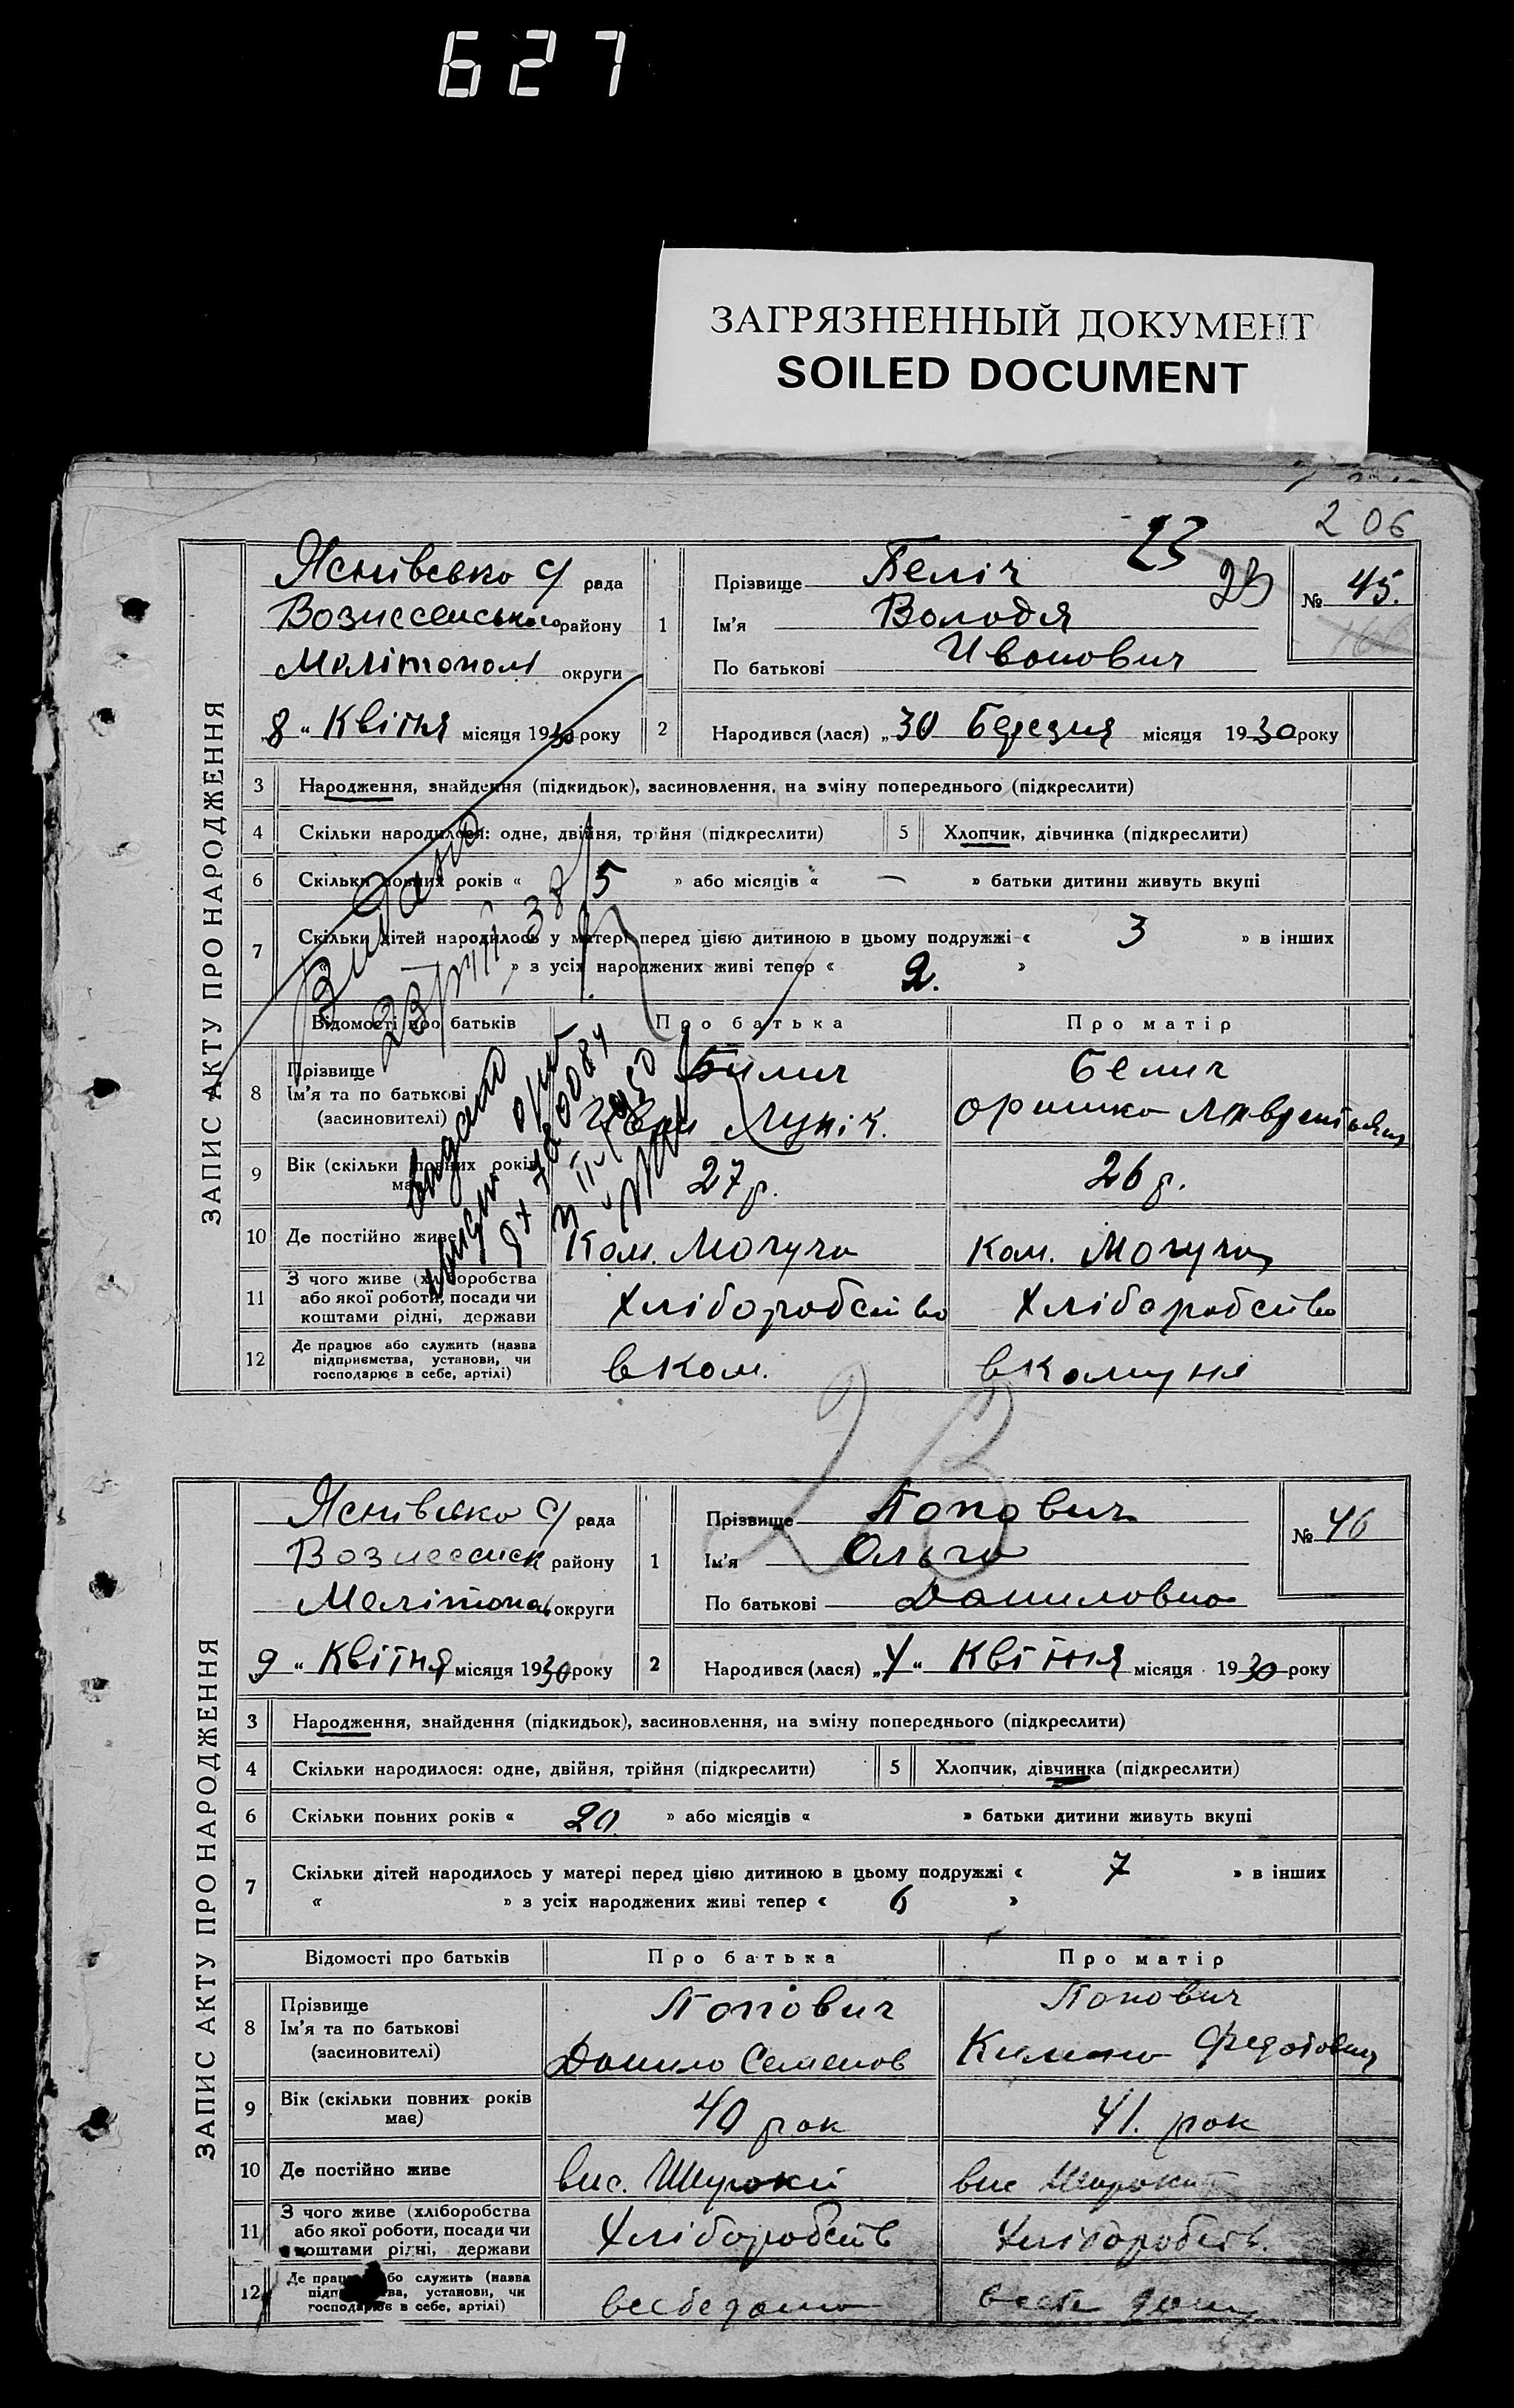 627
ЗАГРЯЗНЕННЫЙ ДОКУМЕНТ
SOILED DOCUMENT
206
23
23
ЗАПИС АКТУ ПРО НАРОДЖЕННЯ
Яснівсько с/ рада
Вознесенського району
Мелітополь округи
„8“ Квітня місяця 1930 року
1
Прізвище Беліч
Ім'я Володя
По батькові Ивонович
№ 45.
2 Народився (лася) „30 Березня місяця 1930 року
3 Народження, знайдення (підкидьок), засиновлення, на зміну попереднього (підкреслити)
4 Скільки народилося: одне, двійня, трійня (підкреслити) 5 Хлопчик, дівчинка (підкреслити)
6 Скільки повних років « 5 » або місяців « — » батьки дитини живуть вкупі
7 Скільки дітей народилось у матері перед цією дитиною в цьому подружжі « 3 » в інших
» з усіх народжених живі тепер « 2. »
Відомості про батьків Про батька Про матір
8 Прізвище
Ім'я та по батькові
(засиновителі)
Билич
Белич
9 Вік (скільки повних років має) 27 р. 26 р.
10 Де постійно живе Ком. Могучо Ком. Могучо
11 З чого живе (хліборобства
або якої роботи, посади чи
коштами рідні, держави
Хліборобство Хліборобство
12 Де працює або служить (назва
підприємства, установи, чи
господарює в себе, артілі)
в Ком. в Комуні
23
ЗАПИС АКТУ ПРО НАРОДЖЕННЯ
Яснівсько с/ рада
Вознесенск району
Мелітополь округи
9 “ Квітня місяця 1930 року
1
Прізвище Попович
Ім'я Ольго
По батькові Даниловно
№ 46
2 Народився (лася) „4“ Квітня місяця 1930 року
3 Народження, знайдення (підкидьок), засиновлення, на зміну попереднього (підкреслити)
4 Скільки народилося: одне, двійня, трійня (підкреслити) 5 Хлопчик, дівчинка (підкреслити)
6 Скільки повних років « 20 » або місяців « » батьки дитини живуть вкупі
7 Скільки дітей народилось у матері перед цією дитиною в цьому подружжі « 7 » в інших
« » з усіх народжених живі тепер « 6 »
Відомості про батьків Про батька Про матір
8 Прізвище
Ім'я та по батькові
(засиновителі)
Попович Попович
Данило Семенов
9 Вік (скільки повних років
має)
40 рок 41. рок
10 Де постійно живе вис. Широкій вис Широкий
11 З чого живе (хліборобства
або якої роботи, посади чи
коштами рідні, держави
Хліборобств Хліборобств.
12 Де працює або служить (назва
підприємства, установи, чи
господарює в себе, артілі)